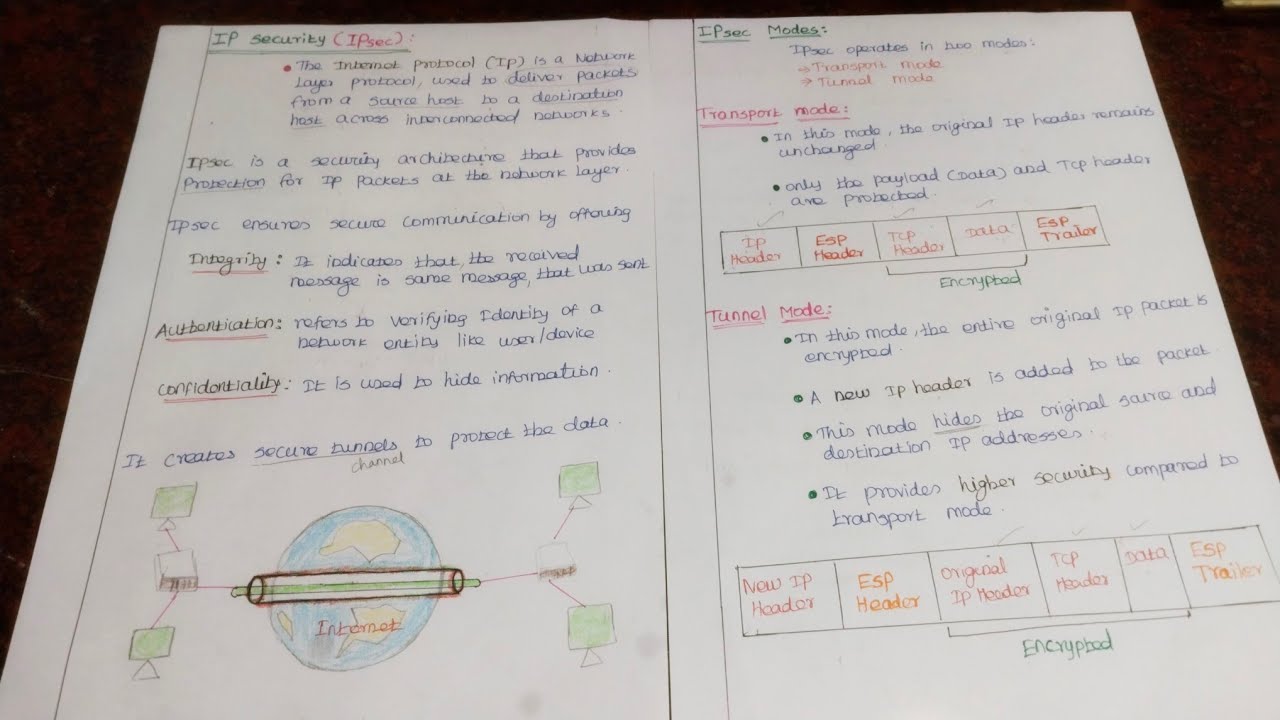 IP Security (IPsec):
• The Internet Protocol (IP) is a Network
Layer protocol, used to deliver packets
from a source host to a destination
host across interconnected networks.
IPsec is a security architecture that provides
Protection for IP packets at the network layer.
IPsec ensures secure communication by offering
Integrity: It indicates that, the received
message is same message, that was sent
Authentication: refers to verifying Identity of a
network entity like user/device
Confidentiality: It is used to hide information.
It creates secure tunnels to protect the data.
channel
Internet
IPsec Modes:
IPsec operates in two modes:
→ Transport mode
→ Tunnel mode
Transport mode:
• In this mode, the original IP header remains
unchanged.
• only the payload (Data) and TCP header
are protected.
IP Header
ESP Header
TCP Header
Data
ESP Trailer
Encrypted
Tunnel Mode:
• In this mode, the entire original IP packet is
encrypted.
• A new IP header is added to the packet.
• This mode hides the original source and
destination IP addresses.
• It provides higher security compared to
transport mode.
New IP Header
ESP Header
Original IP Header
TCP Header
Data
ESP Trailer
Encrypted